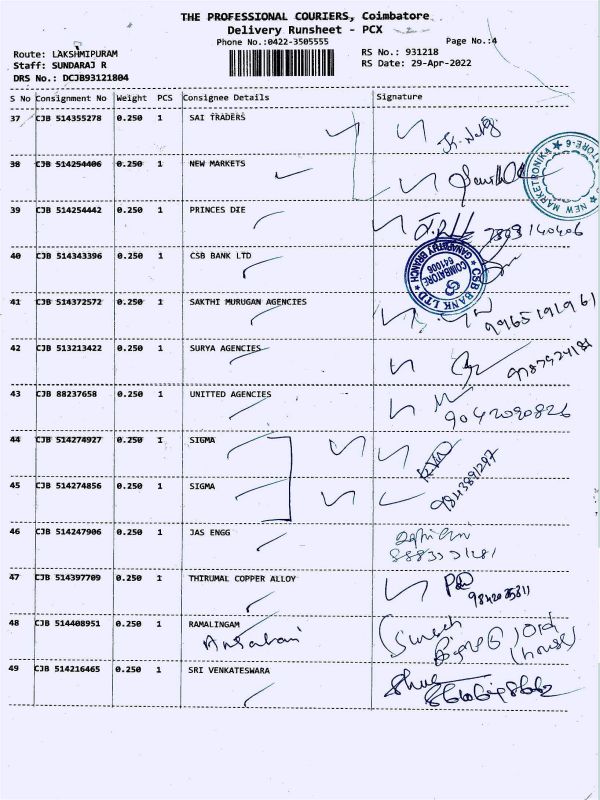 THE PROFESSIONAL COURIERS, Coimbatore
Delivery Runsheet - PCX
Phone No.:0422-3505555 Page No.:4
Route: LAKSHMIPURAM RS No.: 931218
Staff: SUNDARAJ R RS Date: 29-Apr-2022
DRS No.: DCJB93121804
S No Consignment No Weight PCS Consignee Details Signature
37 CJB 514355278 0.250 1 SAI TRADERS
38 CJB 514254406 0.250 1 NEW MARKETS
NEW MARKETRONIKA
39 CJB 514254442 0.250 1 PRINCES DIE
40 CJB 514343396 0.250 1 CSB BANK LTD
CSB BANK LTD GANAPATHY BRANCH
COIMBATORE
641006
41 CJB 514372572 0.250 1 SAKTHI MURUGAN AGENCIES
9965191961
42 CJB 513213422 0.250 1 SURYA AGENCIES
43 CJB 88237658 0.250 1 UNITTED AGENCIES
9042090826
44 CJB 514274927 0.250 1 SIGMA
45 CJB 514274856 0.250 1 SIGMA
9843891297
46 CJB 514247906 0.250 1 JAS ENGG
47 CJB 514397709 0.250 1 THIRUMAL COPPER ALLOY
9842035811
48 CJB 514408951 0.250 1 RAMALINGAM
Suresh
49 CJB 514216465 0.250 1 SRI VENKATESWARA